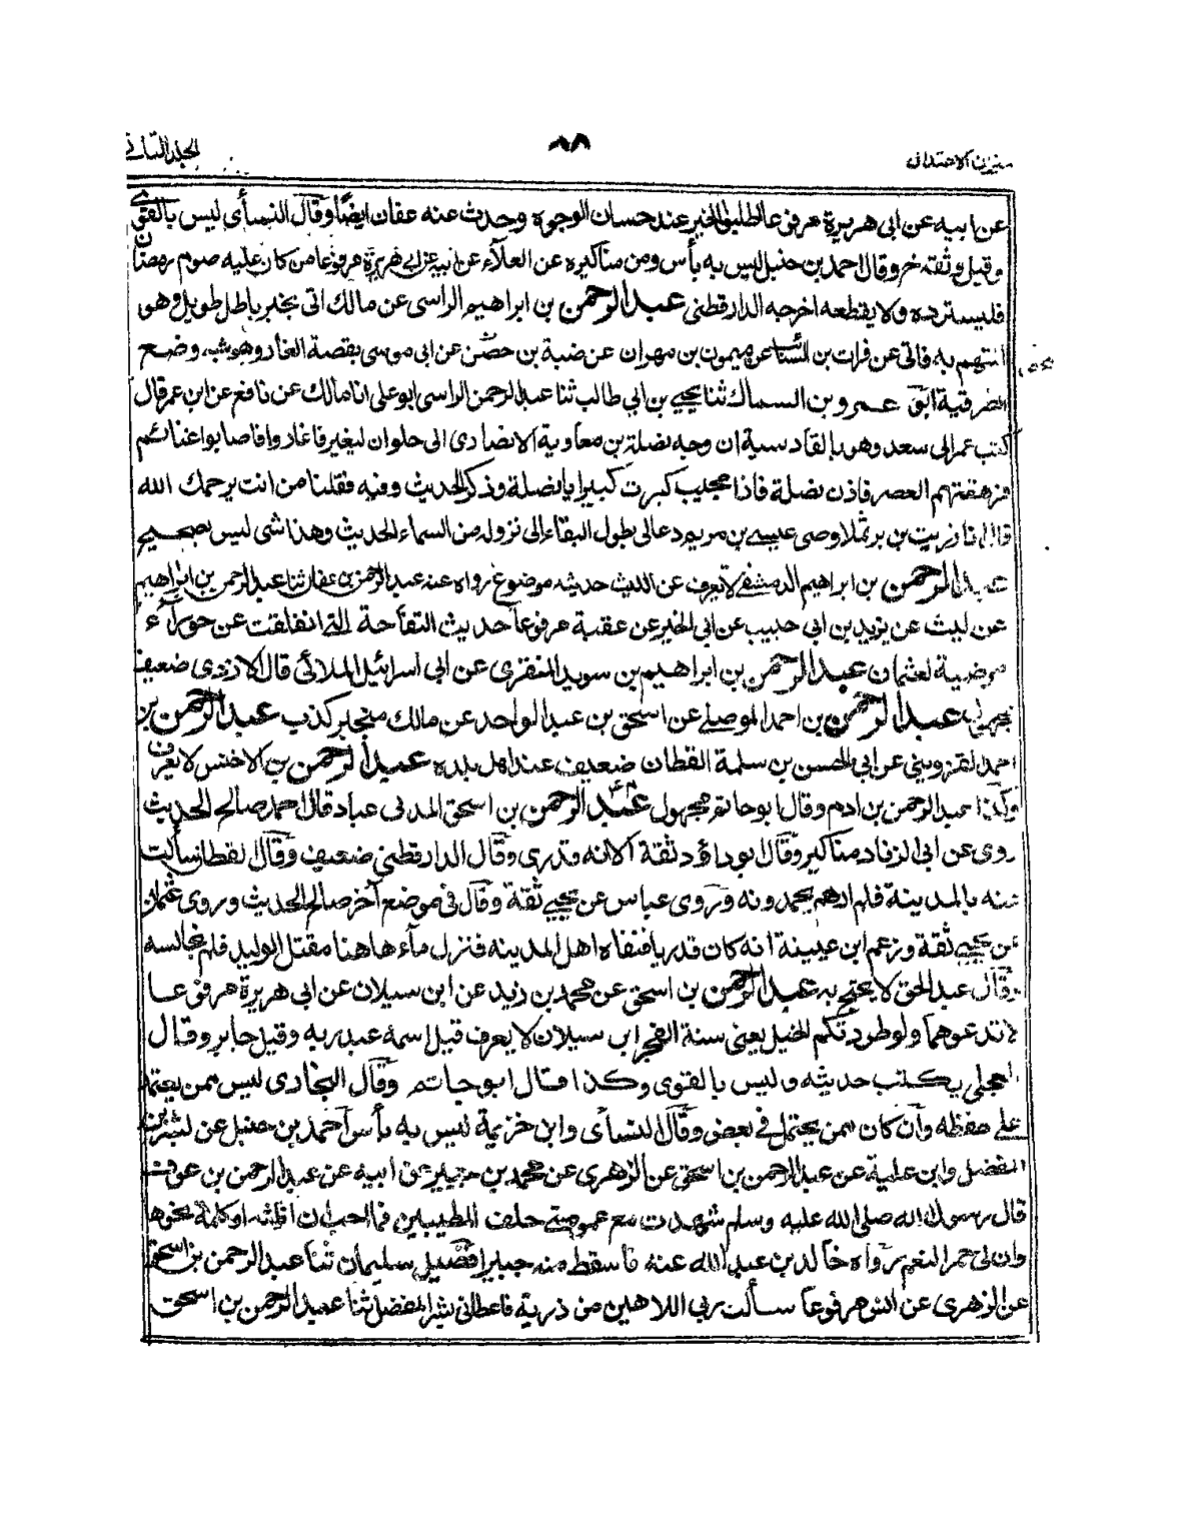 ميزان الاعتدال
٨٨
الجلد الثاني
عن ابيه عن ابى هريرة مرفوعا اطلبوا الخير عند حسان الوجوه وحدث عنه عفان ايضا وقال النسأى ليس بالقوى
وقيل وثقه خ وقال احمد بن حنبل ليس به بأس ومن مناكيره عن العلاء عن ابيه عن ابى هريرة مرفوعا من كان عليه صوم رمضان
فليسترده ولا يقطعه اخرجه الدارقطنى عبد الرحمن بن ابراهيم الراسى عن مالك اتى بخبر باطل طويل وهو
المتهم به فاتى عن فرات بن السائب عن ميمون بن مهران عن ضبة بن حصن عن ابى موسى بقصة الغار وهو شبه وضع
عمرو بن السماك ثنا يحيى بن ابي طالب ثنا عبد الرحمن الراسى ابو على انا مالك عن نافع عن ابن عمر قال
كتب عمر الى سعد وهو بالقادسية ان وجه نضلة بن معاوية الانصارى الى حلوان ليغير فاغاروا فاصابوا غنائم
فرهقتهم العصر فاذن نضلة فاذا مجيب كبرت كبيرا يا نضلة وذكر الحديث وفيه فقلنا من انت يرحمك الله
قال انا زريت بن برثملا وصى عيسى بن مريم دعا لى بطول البقاء الى نزوله من السماء الحديث وهذا شى ليس بصحيح
عبد الرحمن بن ابراهيم الدمشقى لا يعرف عن الليث حديثه موضوع رواه عنه عبد الرحمن بن عفان ثنا عبد الرحمن بن ابراهيم
عن ليث عن يزيد بن ابى حبيب عن ابى الخير عن عقبة مرفوعا حديث التفاحة التى انفلقت عن حوراء
مرضية لعثمان عبد الرحمن بن ابراهيم بن سويد المنقرى عن ابى اسرائيل الملائى قال الازدى ضعيف
مجهول عبد الرحمن بن احمد الموصلى عن اسحق بن عبد الواحد عن مالك بخبر كذب عبد الرحمن بن
احمد القزوينى عن ابى الحسن بن سلمة القطان ضعيف عند اهل بلده عبد الرحمن بن الاخنس لا يعرف
وكذا عبد الرحمن بن ادم وقال ابو حاتم مجهول عبد الرحمن بن اسحق المدنى عباد قال احمد صالح الحديث
روى عن ابى الزناد مناكير وقال ابو داود ثقة الا انه قدرى وقال الدارقطنى ضعيف وقال القطان سألت
عنه بالمدينة فلم ارهم يحمدونه وروى عباس عن يحيى ثقة وقال فى موضع آخر صالح الحديث وروى عثمان
عن يحيى ثقة وزعم ابن عيينة انه كان قدريا فنفاه اهل المدينه فنزل ماء هاهنا مقتل الوليد فلم نجالسه
وقال عبد الحق لا يحتج به عبد الرحمن بن اسحق عن محمد بن زيد عن ابن سيلان عن ابى هريرة مرفوعا
لا تدعوهما ولو طردتكم الخيل يعنى سنة الفجر ابن سيلان لا يعرف قيل اسمه عبد ربه وقيل جابر وقال
العجلى يكتب حديثه وليس بالقوى وكذا قال ابو حاتم وقال البخارى ليس ممن يعتمد
على حفظه وان كان ممن يحتمل فى بعض وقال النسأى وابن خزيمة ليس به بأس احمد بن حنبل عن بشر بن
المفضل وابن علية عن عبد الرحمن بن اسحق عن الزهرى عن محمد بن جبير عن ابيه عن عبد الرحمن بن عوف
قال رسول الله صلى الله عليه وسلم شهدت مع عمومتى حلف المطيبين فما احب ان انكثه او كلمة نحوها
وان لى حمر النعم رواه خالد بن عبد الله عنه فاسقط منه جبيرا فضيل بن سليمان ثنا عبد الرحمن بن اسحق
عن الزهرى عن انس مرفوعا سألت ربى اللاهين من ذرية فاعطانى بشر المفضل ثنا عبد الرحمن بن اسحق